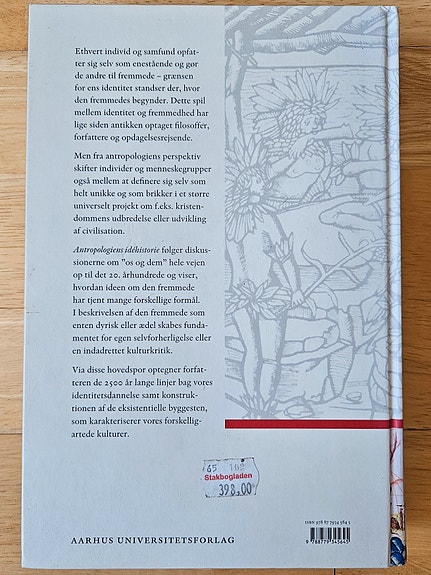 Ethvert individ og samfund opfat-
ter sig selv som enestående og gør
de andre til fremmede – grænsen
for ens identitet standser der, hvor
den fremmedes begynder. Dette spil
mellem identitet og fremmedhed har
lige siden antikken optaget filosoffer,
forfattere og opdagelsesrejsende.
Men fra antropologiens perspektiv
skifter individer og menneskegrupper
også mellem at definere sig selv som
helt unikke og som brikker i et større
universelt projekt om f.eks. kristen-
dommens udbredelse eller udvikling
af civilisation.
Antropologiens idéhistorie følger diskus-
sionerne om "os og dem" hele vejen
op til det 20. århundrede og viser,
hvordan ideen om den fremmede
har tjent mange forskellige formål.
I beskrivelsen af den fremmede som
enten dyrisk eller ædel skabes funda-
mentet for egen selvforherligelse eller
en indadrettet kulturkritik.
Via disse hovedspor optegner forfat-
teren de 2500 år lange linjer bag vores
identitetsdannelse samt konstruk-
tionen af de eksistentielle byggesten,
som karakteriserer vores forskellig-
artede kulturer.
65 102
Stakbogladen
398,00
ISBN 978 87 7934 564 5
9 788779 345645
AARHUS UNIVERSITETSFORLAG